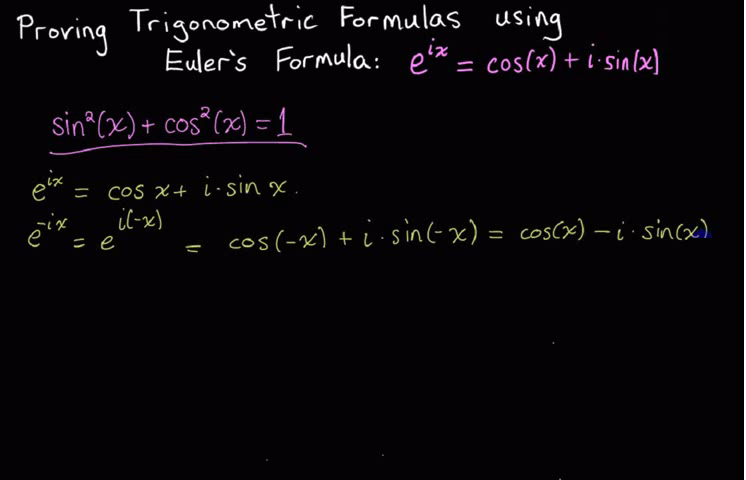 Proving Trigonometric Formulas using
Euler's Formula: e^{ix} = cos(x) + i·sin(x)
sin²(x) + cos²(x) = 1
e^{ix} = cos x + i·sin x.
e^{-ix} = e^{i(-x)} = cos(-x) + i·sin(-x) = cos(x) - i·sin(x)